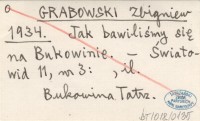 GRABOWSKI Zbigniew
1934. Jak bawiliśmy się
na Bukowinie. — Świato-
wid 11, nr 3: , il.
Bukowina Tatrz.